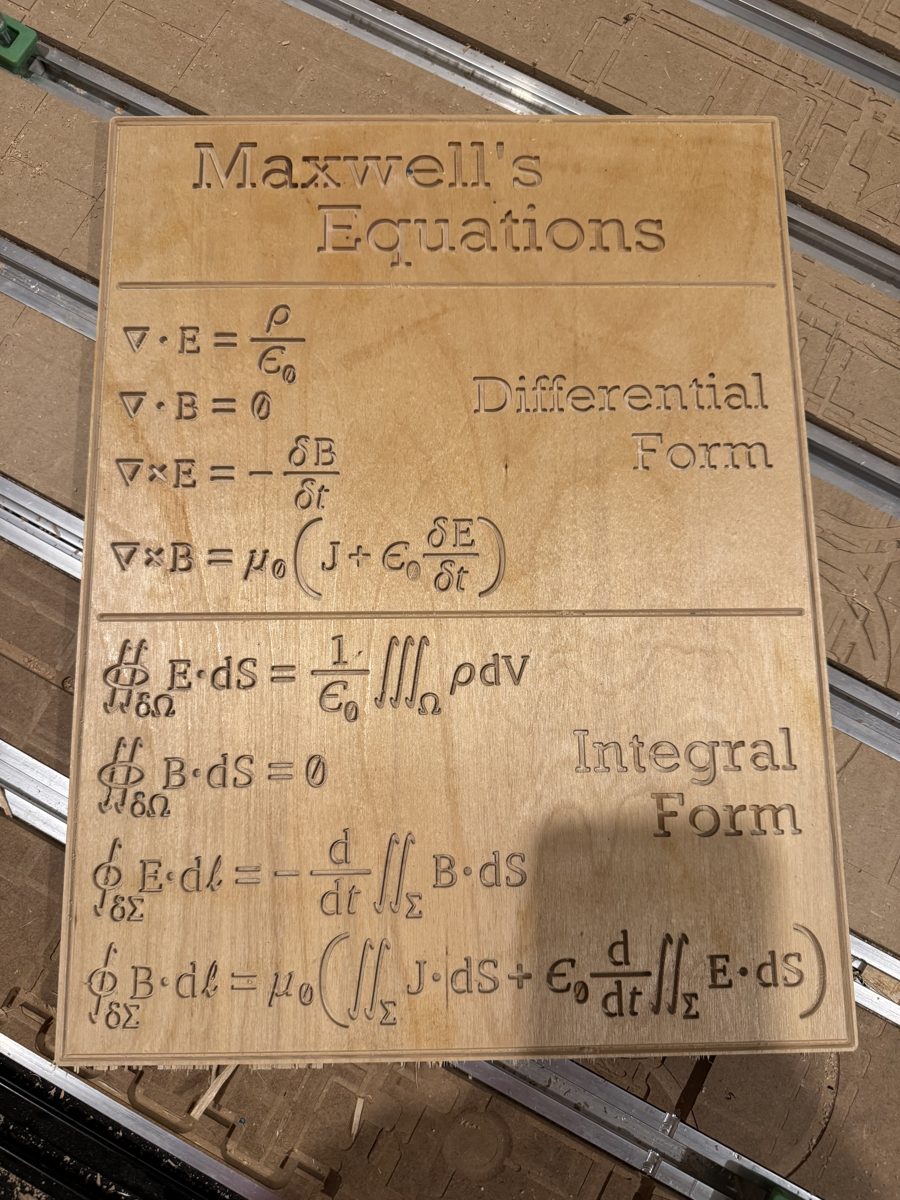 Maxwell's
Equations
∇·E = ρ/ϵ₀
∇·B = 0
∇×E = −δB/δt
∇×B = μ₀(J + ϵ₀ δE/δt)
Differential
Form
∯_δΩ E·dS = 1/ϵ₀ ∭_Ω ρdV
∯_δΩ B·dS = 0
∮_δΣ E·dℓ = − d/dt ∬_Σ B·dS
∮_δΣ B·dℓ = μ₀(∬_Σ J·dS + ϵ₀ d/dt ∬_Σ E·dS)
Integral
Form